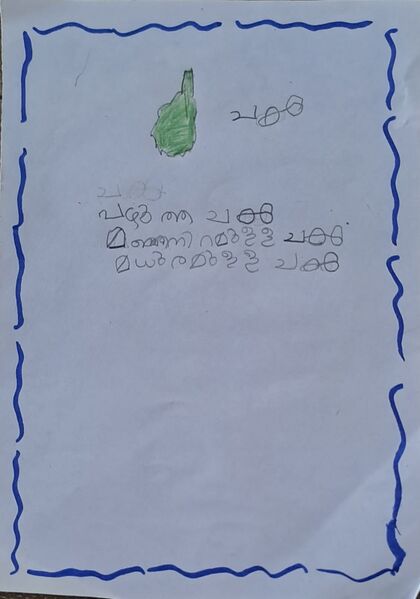 ചക്ക
ചക്ക
പഴുത്ത ചക്ക
മഞ്ഞനിറമുള്ള ചക്ക
മധുരമുള്ള ചക്ക